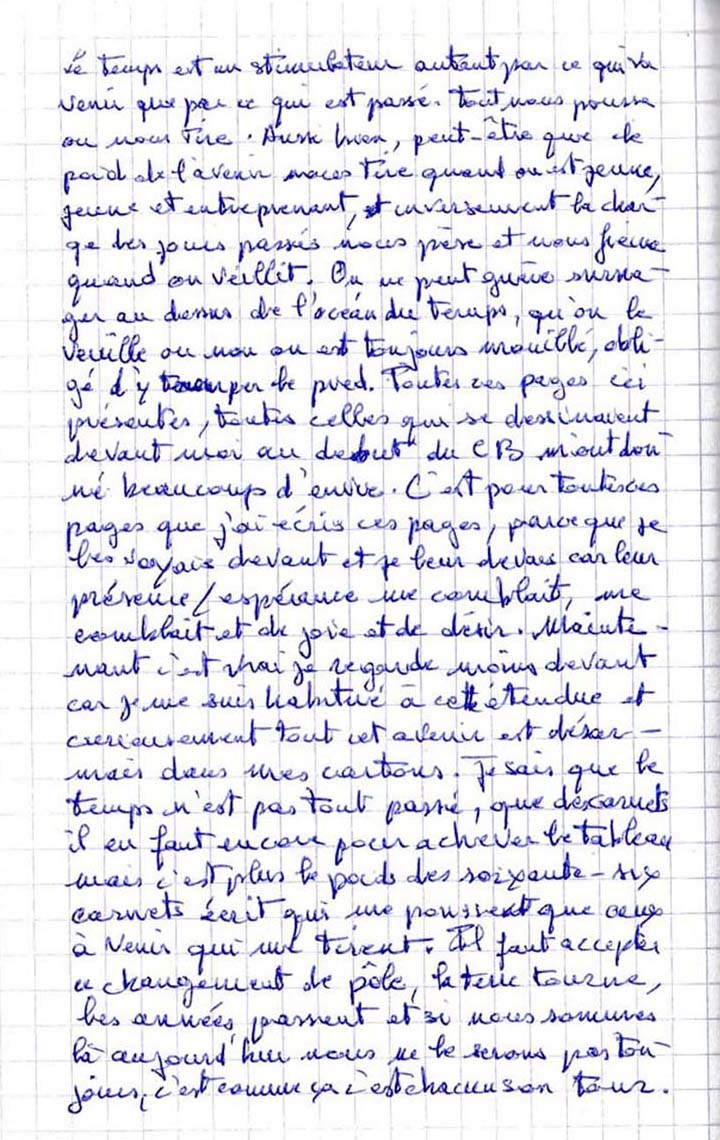 Le temps est un stimulateur autant par ce qui va
venir que par ce qui est passé. Tout nous pousse
ou nous tire. Aussi bien, peut-être que le
poid de l'avenir nous tire quand on est jeune,
jeune et entreprenant, et inversement la char-
ge des jours passés nous pèse et nous freine
quand on vieillit. On ne peut guère surna-
ger au dessus de l'océan du temps, qu'on le
veuille ou non on est toujours mouillé, obli-
gé d'y tremper le pied. Toutes ces pages ici
présentes, toutes celles qui se dessinaient
devant moi au debut du CB m'ont don-
né beaucoup d'envie. C'est pour toutes ces
pages que j'ai écris ces pages, parce que je
les voyais devant et je leur devais car leur
présence / espérance me comblait, me
comblait et de joie et de désir. Mainte-
nant c'est vrai je regarde moins devant
car je me suis habitué à cette étendue et
curieusement tout cet avenir est désor-
mais dans mes cartons. Je sais que le
temps n'est pas tout passé, que des carnets
il en faut encore pour achever le tableau
mais c'est plus le poids des soixante-six
carnets écrit qui me poussent que ceux
à venir qui me tirent. Il faut accepter
ce changement de pôle, la terre tourne,
les années passent et si nous sommes
là aujourd'hui nous ne le serons pas tou-
jours, c'est comme ça c'est chacun son tour.